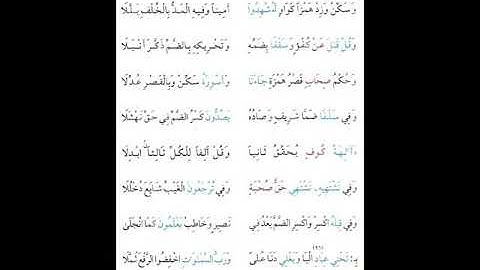 وَسَكِّنْ وَزِدْ هَمْزاً كَوَاوٍ أَؤُشْهِدُوا أَمِيناً وَفِيهِ الْمَدُّ بِالْخُلْفِ بَلَّلَا
وَقُلْ قَالَ عَنْ كُفْؤٍ وَسَقْفاً بِضَمِّهِ وَتَحْرِيكِهِ بِالضَّمِّ ذَكَّرَ أَنْبَلَا
وَحُكْمُ صِحَابٍ قَصْرُ هَمْزَةِ جَاءَنَا وَأَسْوِرَةٌ سَكِّنْ وَبِالْقَصْرِ عُدِّلَا
وَفِي سَلَفاً ضَمَّا شَرِيفٍ وَصَادُهُ يَصُدُّونَ كَسْرُ الضَّمِّ فِي حَقِّ نَهْشَلَا
ءَآلِهَةٌ كُوفٍ يُحَقِّقُ ثَانِياً وَقُلْ أَلِفاً لِلْكُلِّ ثَالِثاً ابْدِلَا
وَفِي تَشْتَهِيهِ تَشْتَهِي حَقُّ صُحْبَةٍ وَفِي تُرْجَعُونَ الْغَيْبُ شَايَعَ دُخْلُلَا
وَفِي قِيلَهُ اكْسِرْ وَاكْسِرِ الضَّمَّ بَعْدُ فِي نَصِيرٍ وَخَاطِبْ يَعْلَمُونَ كَمَا انْجَلَى
بِـ: تَحْتِي عِبَادِ الْيَا وَيَغْلِي دَنَا عُلىً وَرَبُّ السَّمَوَاتِ اخْفِضُوا الرَّفْعَ ثُمَّلَا